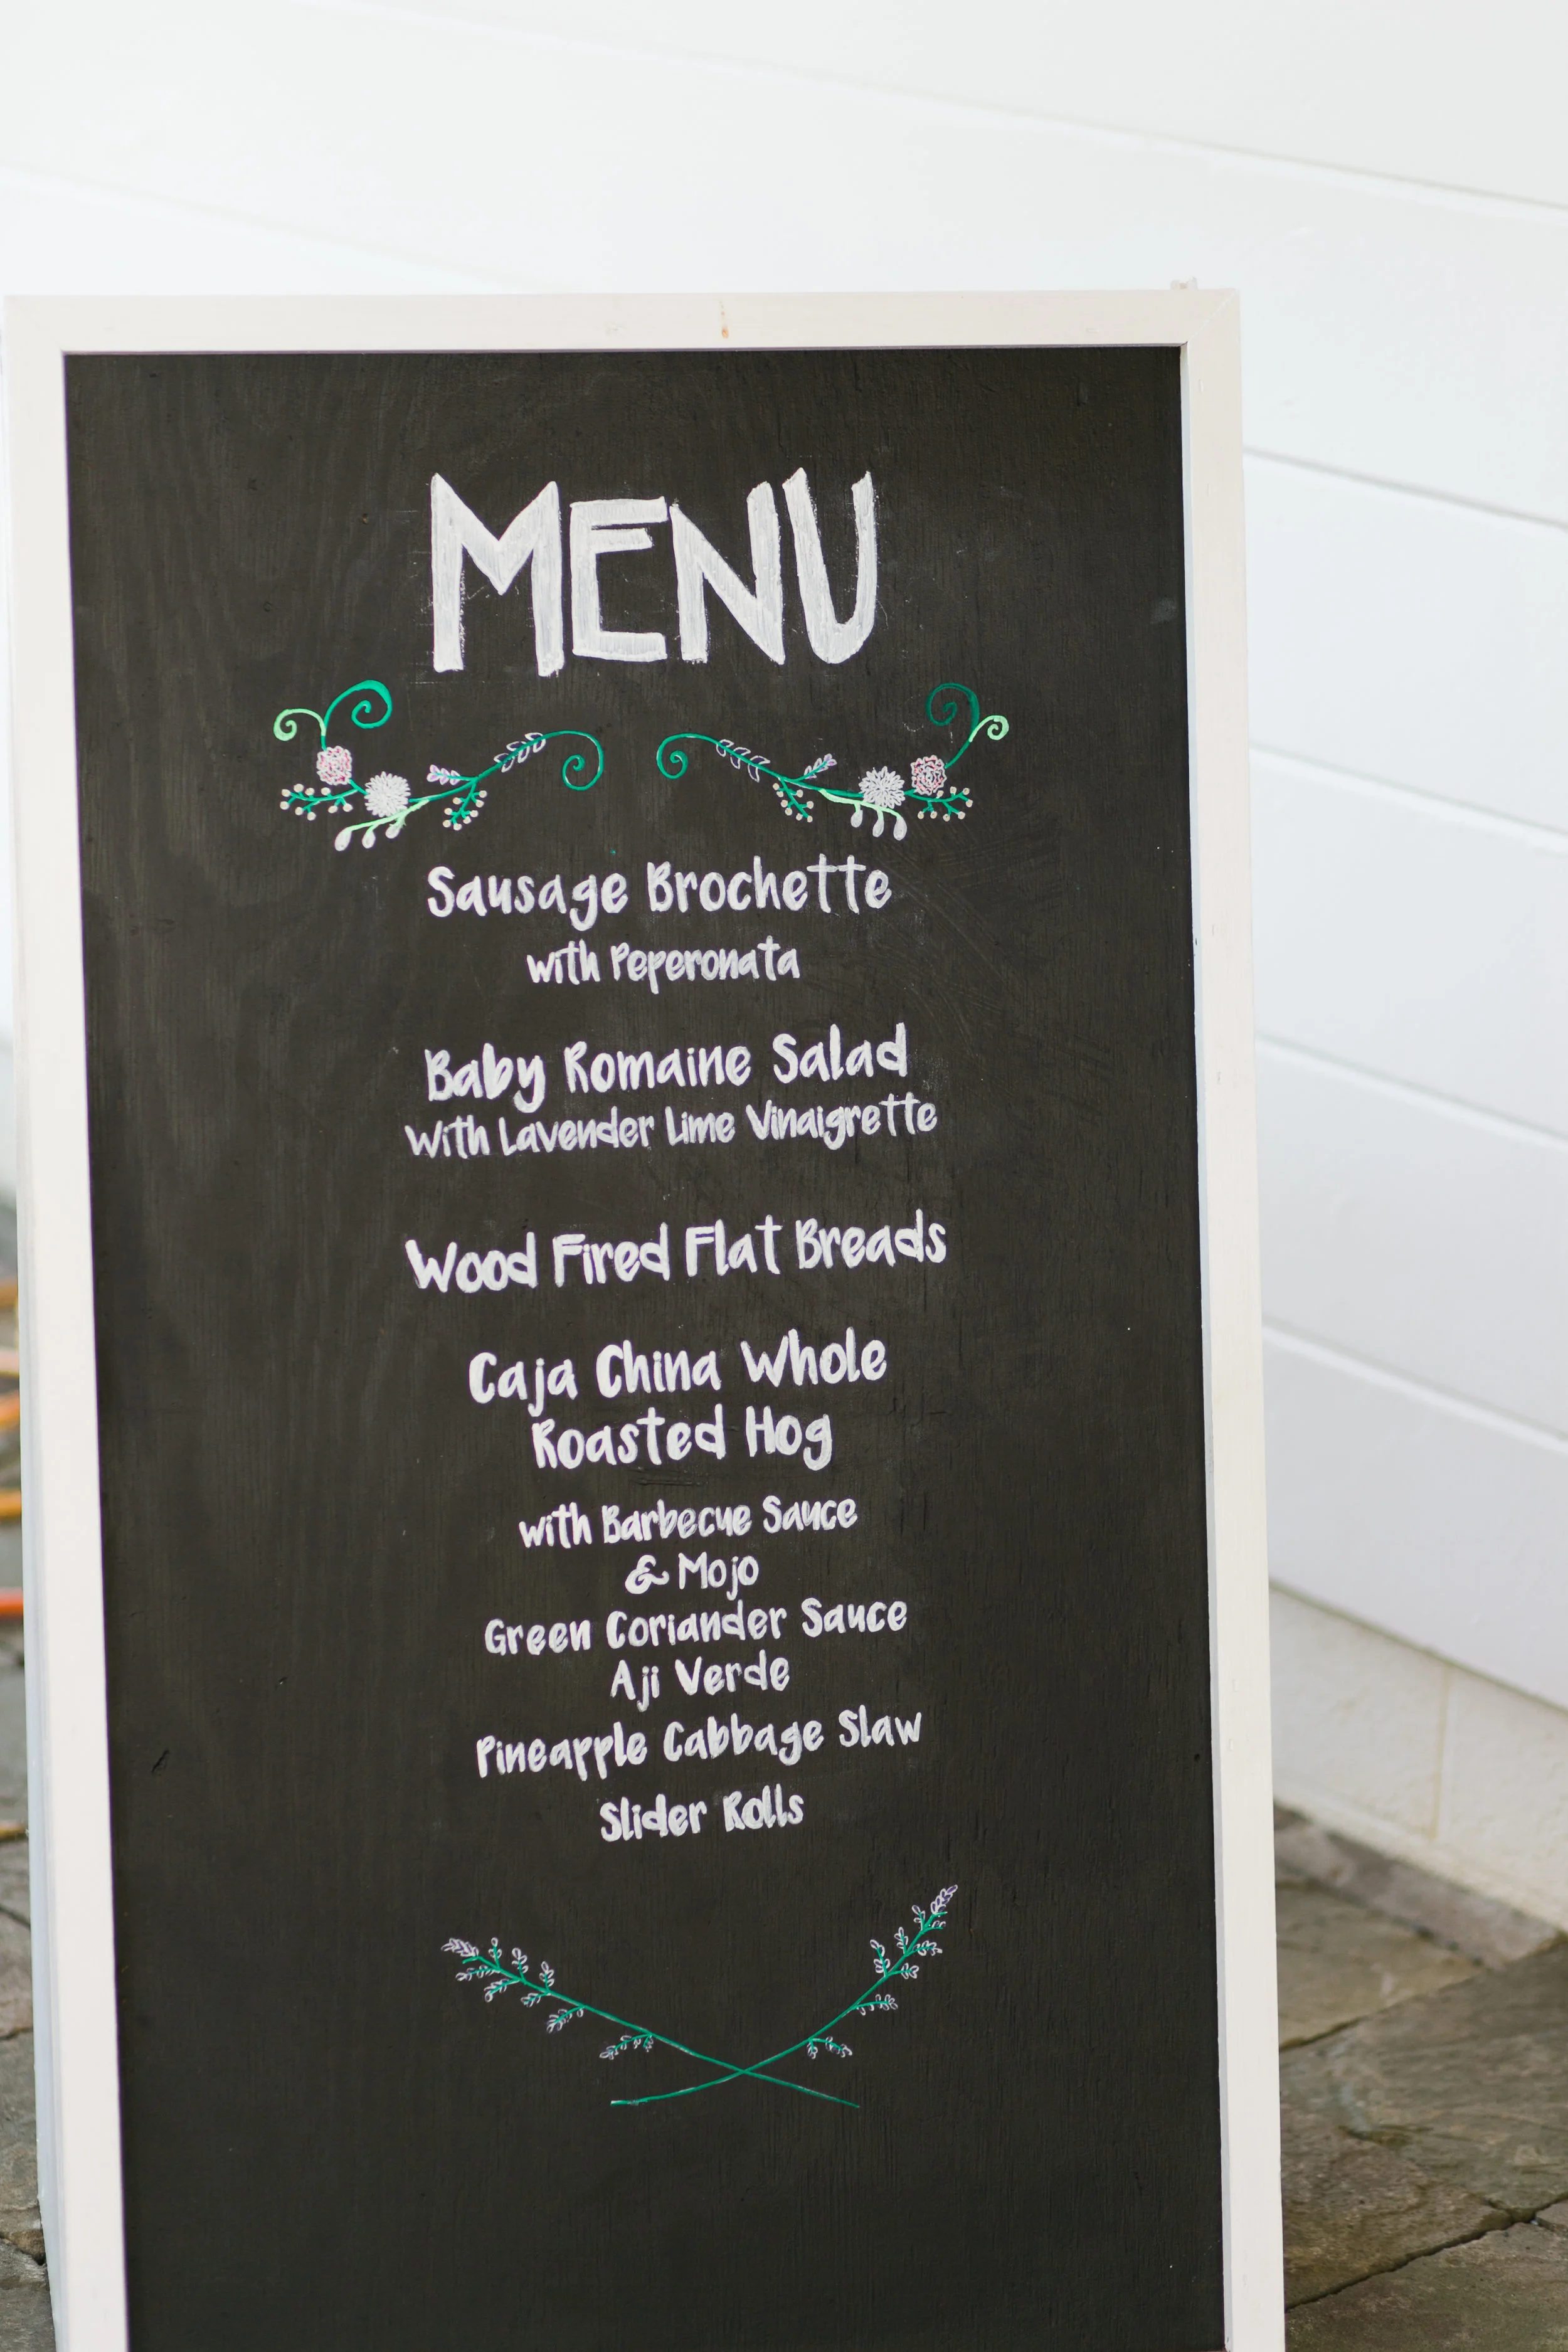 MENU
Sausage Brochette
with Peperonata
Baby Romaine Salad
With Lavender Lime Vinaigrette
Wood Fired Flat Breads
Caja China Whole
Roasted Hog
with Barbecue Sauce
& Mojo
Green Coriander Sauce
Aji Verde
Pineapple Cabbage Slaw
Slider Rolls